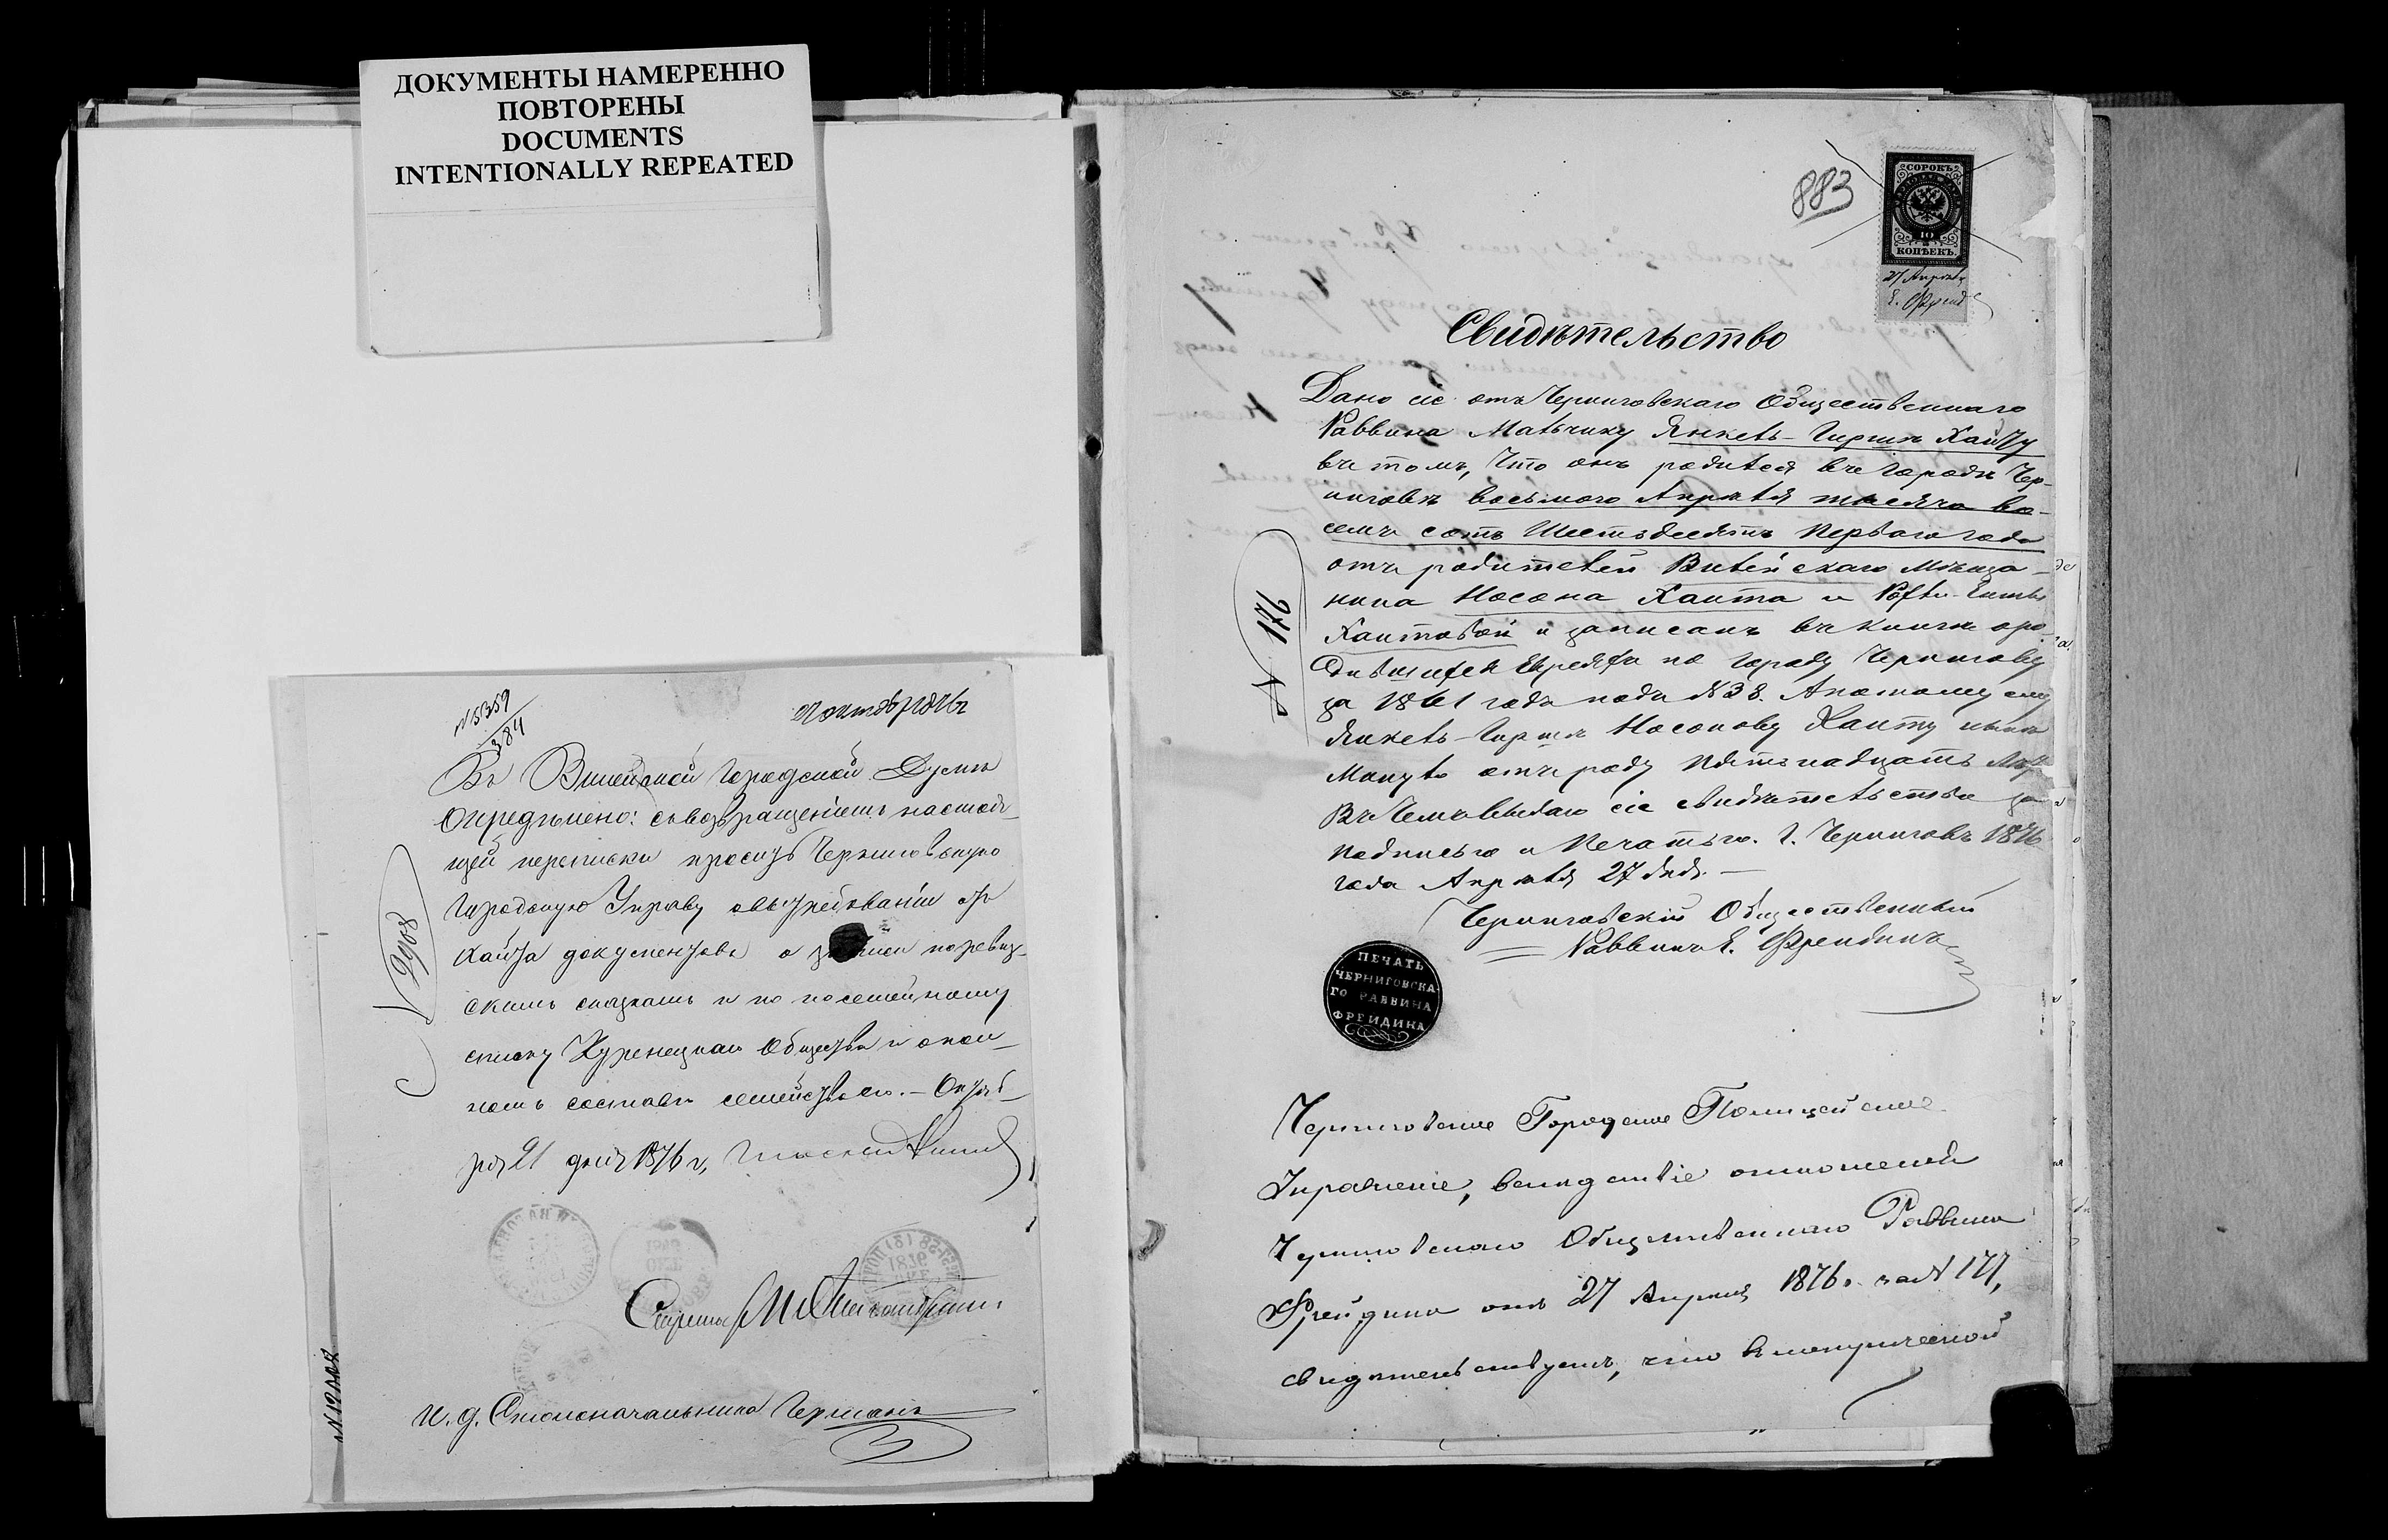 ДОКУМЕНТЫ НАМЕРЕННО
ПОВТОРЕНЫ
DOCUMENTS
INTENTIONALLY REPEATED
№ 5359
384
Въ Вилейской Городской Думѣ
Опредѣлено: съ возвращеніемъ настоя-
щей переписки просить Черниговскую
Городскую Управу о вытребованіи отъ
Хаита документовъ о записи по ревиз-
скимъ сказкамъ и по посемейному
списку Куренецкаго Общества и о пол-
номъ составѣ семейства его. – Октяб-
ря 21 дня 1876 г.
Секретарь
И. д. Столоначальника Германъ
883
СОРОКЪ
10
КОПѢЕКЪ.
27 Апрѣля
Е. Фрейд
Свидѣтельство
Дано сіе отъ Черниговскаго Общественнаго
Раввина Мальчику Янкель-Гиршъ Хаиту
въ томъ, что онъ родился въ городѣ Чер-
ниговѣ восьмого Апрѣля тысяча во-
семь сотъ шестьдесятъ перваго года
отъ родителей Вилейскаго Мѣща-
нина Носона Хаита и
Хаитовой и записанъ въ книгѣ о ро-
дившихся Евреяхъ по городу Чернигову
за 1861 годъ подъ № 38. А потому ему
Янкель-Гиршъ Носонову Хаиту нынѣ
минуло отъ роду пятьнадцать лѣтъ
въ чемъ выдаю сіе свидѣтельство за
подписью и печатью. Г. Черниговъ 1876
года Апрѣля 27 дня. —
Черниговскій Общественный
Раввинъ Е. Фрейдинъ
№ 171
ПЕЧАТЬ
ЧЕРНИГОВСКА-
ГО РАВВИНА
ФРЕЙДИНА
Черниговское Городское Полицейское
Управленіе, вслѣдствіе отношенія
Черниговскаго Общественнаго Раввина
Фрейдина отъ 27 Апрѣля 1876 г. за № 171,
свидѣтельствуетъ, что въ метрической